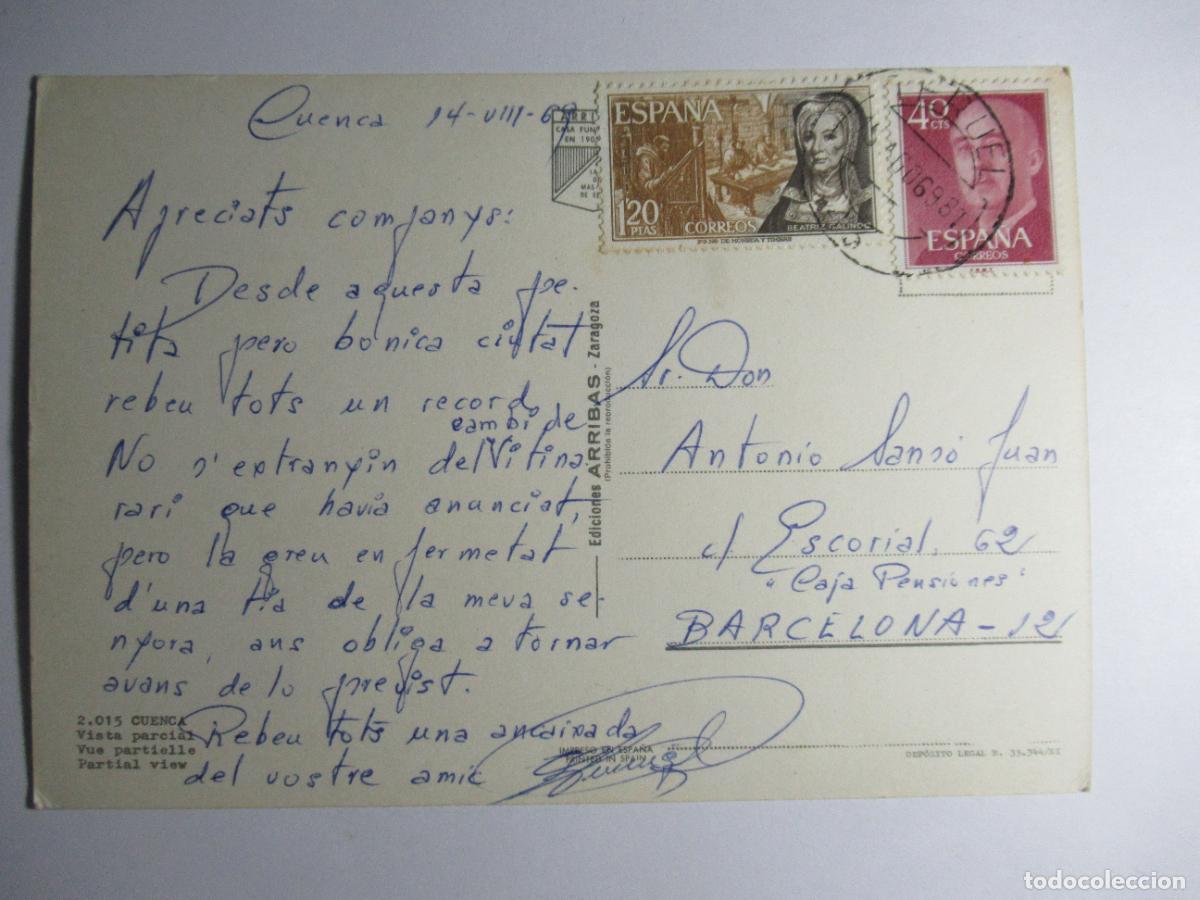 Cuenca 14-VIII-69
Apreciats companys:
Desde aquesta pe-
tita pero bonica ciutat
rebeu tots un record
cambi de
No s'extranyin del l'itina
rari que havia anunciat,
pero la greu enfermetat
d'una tia de la meva se-
nyora, ans obliga a tornar
avans de lo previst.
Rebeu tots una ancaixada
del vostre amic
2.015 CUENCA
Vista parcial
Vue partielle
Partial view
ARRI
CASA FUN
EN 190
MAS
DE
Ediciones ARRIBAS - Zaragoza
(Prohibida la reproducción)
IMPRESO EN ESPAÑA
PRINTED IN SPAIN
ESPAÑA
1'20
PTAS
CORREOS
BEATRIZ GALINDO
40
CTS
ESPAÑA
CORREOS
TERUEL
Sr. Don
Antonio Sansó Juan
c/ Escorial, 62
"Caja Pensiones"
BARCELONA-12
DEPÓSITO LEGAL B. 33.344/XI
todocoleccion